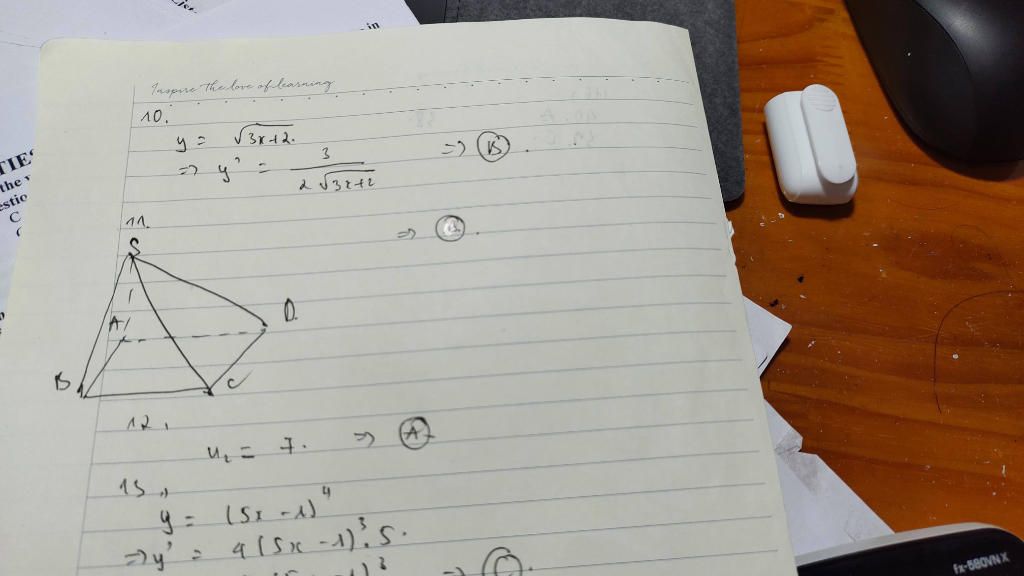 Inspire the love of learning
10.
y = √3x+2.
=> y' = 3 / 2√3x+2 => B.
11.
=>
S
A
D.
B
C
12.
u₂ = 7. => A
y = (5x-1)⁴
=> y' = 4(5x-1)³.5.
=> C.
TIES
the
C
in
fx-880VN X